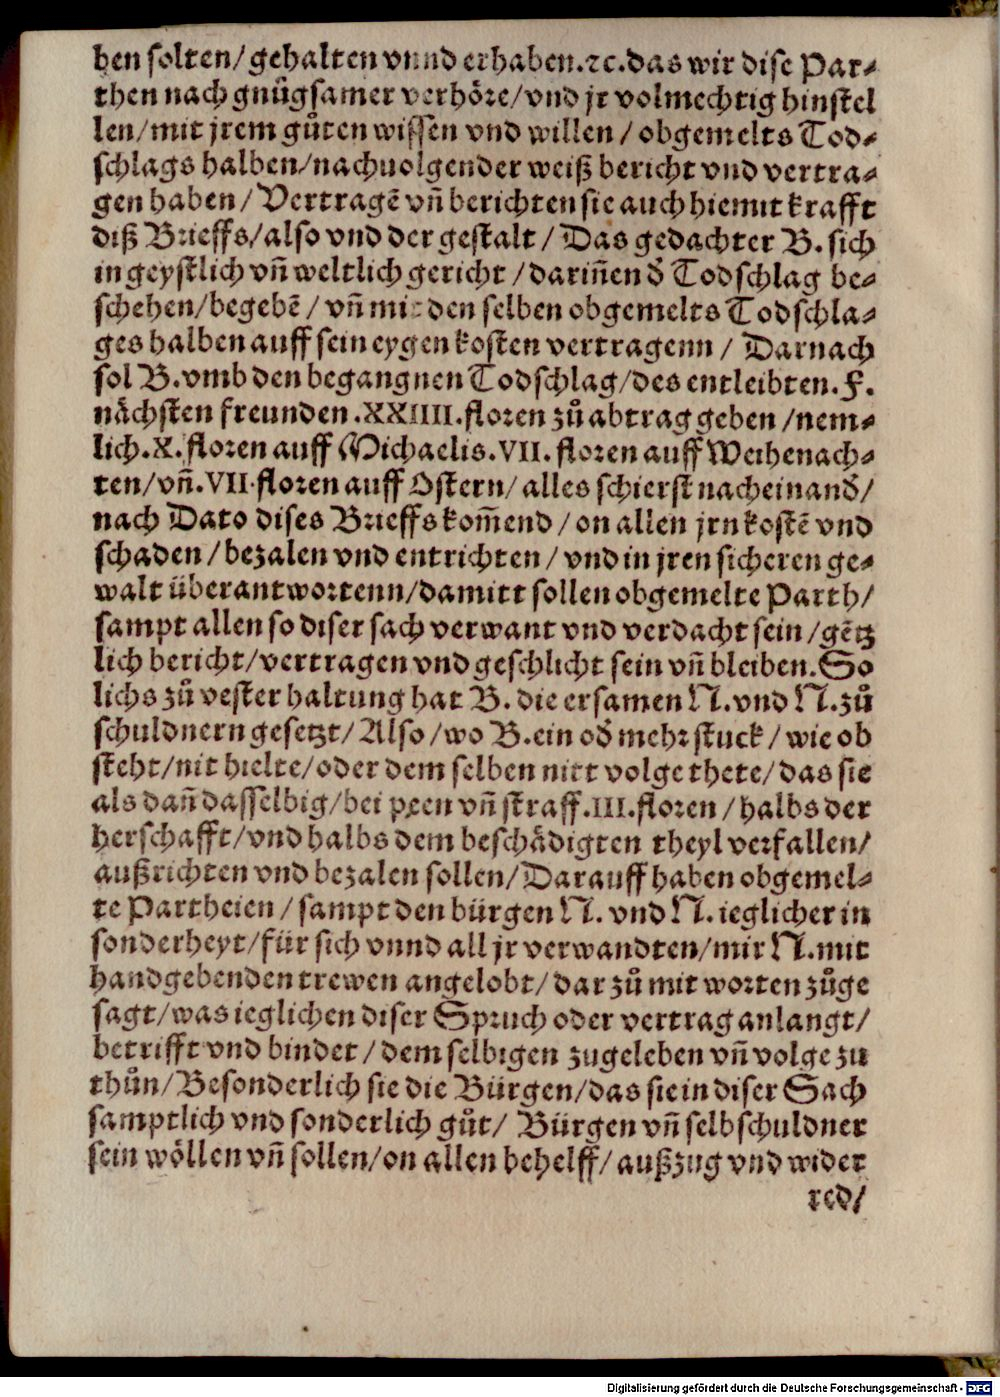 ben solten/gehalten vnnd erhaben.ꝛc.das wir dise Par⸗
then nach gnůgsamer verhöre/vnd jr volmechtig hinstel
len/mit jrem gůten wissen vnd willen / obgemelts Tod⸗
schlags halben/nachuolgender weiß bericht vnd vertra⸗
gen haben / Vertragē vn̄ berichten sie auch hiemit krafft
diß Brieffs/also vnd der gestalt / Das gedachter B. sich
in geystlich vn̄ weltlich gericht / darin̄en d̄ Todschlag be⸗
schehen/begebē / vn̄ mit den selben obgemelts Todschla⸗
ges halben auff sein eygen kosten vertragenn / Darnach
sol B. vmb den begangnen Todschlag/des entleibten. F.
nächsten freunden .XXIIII. floren zů abtrag geben / nem⸗
lich .X. floren auff Michaelis. VII. floren auff Weihenach⸗
ten/vn̄. VII. floren auff Ostern/ alles schierst nacheinand̄/
nach Dato dises Brieffs kom̄end / on allen jrn kostē vnd
schaden / bezalen vnd entrichten / vnd in jren sicheren ge⸗
walt überantwortenn/damitt sollen obgemelte Parth/
sampt allen so diser sach verwant vnd verdacht sein / gētz
lich bericht/vertragen vnd geschlicht sein vn̄ bleiben. So
lichs zů vester haltung hat B. die ersamen N. vnd N. zů
schuldnern gesetzt/ Also / wo B. ein od̄ mehr stuck / wie ob
steht/nit hielte/oder dem selben nitt volge thete/ das sie
als dan̄ dasselbig/bei peen vn̄ straff .III. floren / halbs der
herschafft/vnd halbs dem beschädigten theyl verfallen/
außrichten vnd bezalen sollen/Darauff haben obgemel⸗
te Partheien / sampt den bürgen N. vnd N. ieglicher in
sonderheyt/für sich vnnd all jr verwandten/mir N. mit
handgebenden trewen angelobt/ dar zů mit worten zůge
sagt/was ieglichen diser Spruch oder vertrag anlangt/
betrifft vnd bindet / dem selbigen zugeleben vn̄ volge zu
thůn/Besonderlich sie die Bürgen/das sie in diser Sach
samptlich vnd sonderlich gůt/ Bürgen vn̄ selbschuldner
sein wöllen vn̄ sollen/on allen behelff/ außzug vnd wider
red/
Digitalisierung gefördert durch die Deutsche Forschungsgemeinschaft - DFG